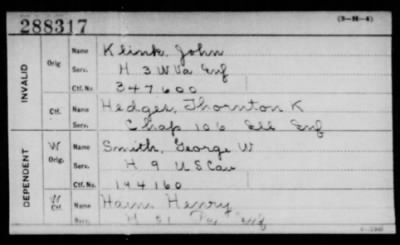 288317
(3-H-4)
INVALID
Orig
Name Klink, John
Serv. H 3 W Va Inf
Ctf. No. 347600
Ctf.
Name Hedges, Thornton K
Serv. Chap 106 Ill Inf
DEPENDENT
W Orig.
Name Smith, George W
Serv. H 9 U S Cav
Ctf. No. 194160
W Ctf.
Name Henry
Serv. H 51 Pa Inf